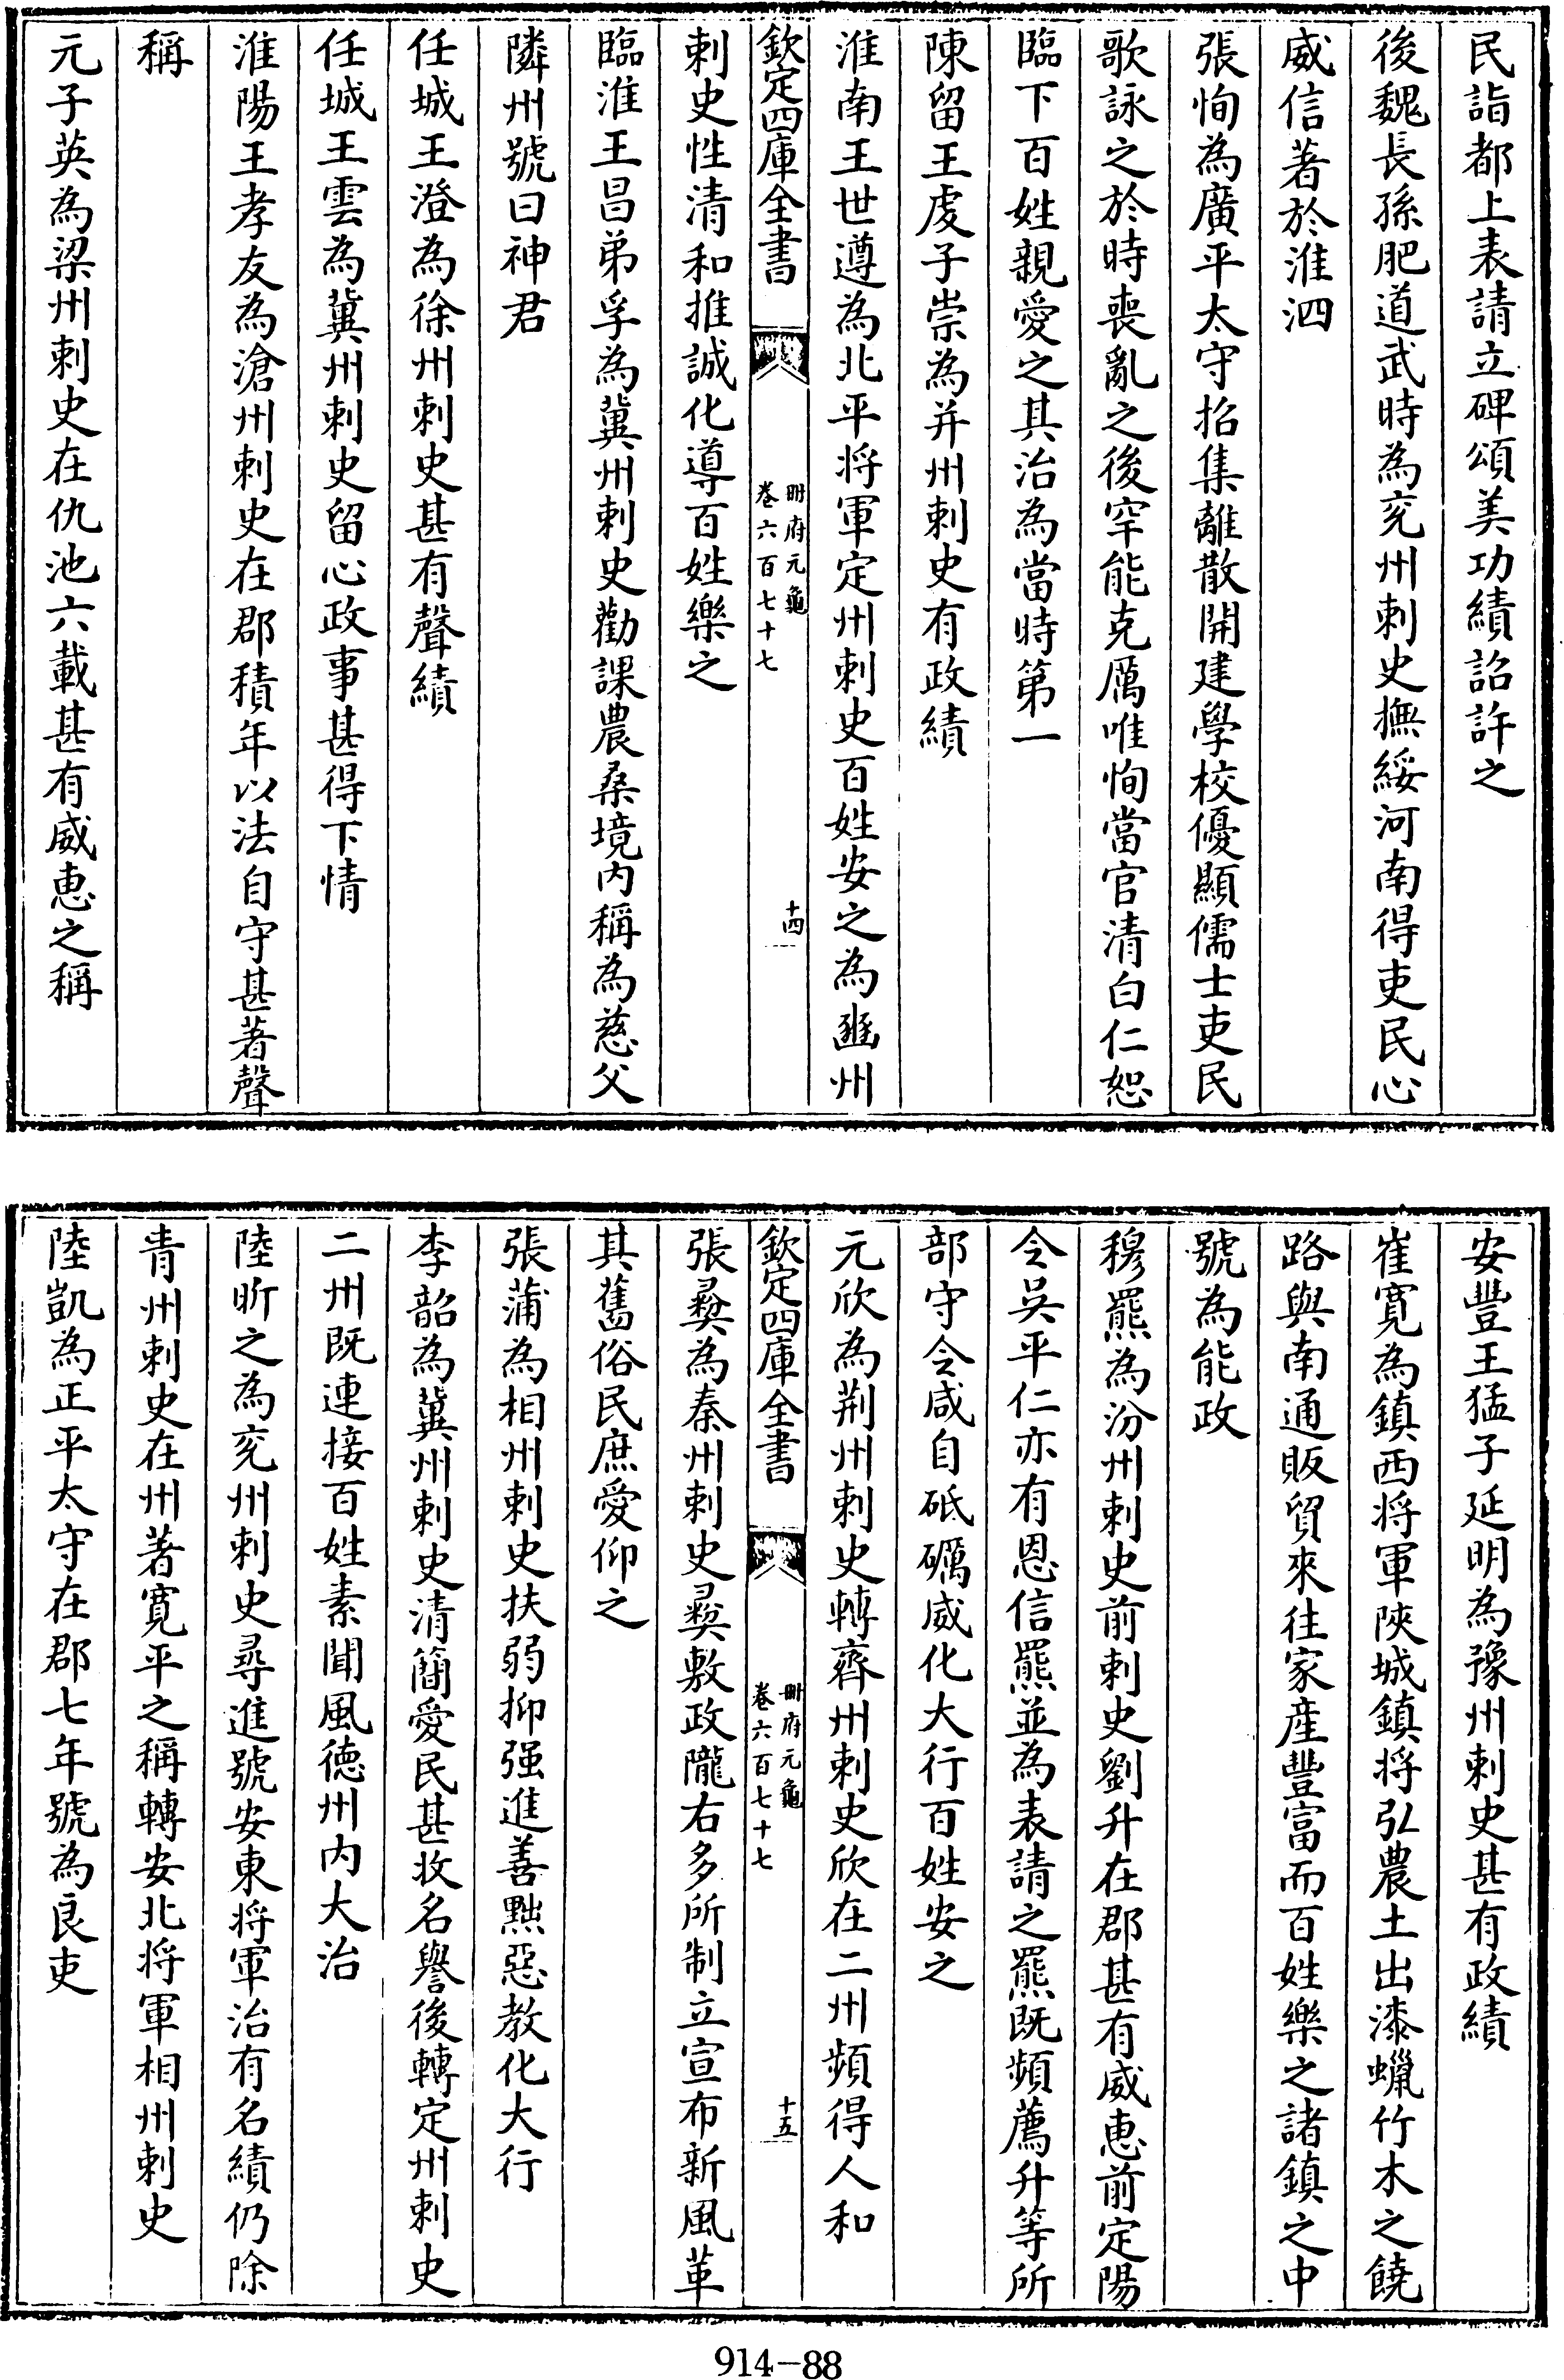 民詣都上表請立碑頌美功績詔許之
後魏長孫肥道武時為兖州刺史撫綏河南得吏民心
威信著於淮泗
張恂為廣平太守招集離散開建學校優顯儒士吏民
歌詠之於時喪亂之後罕能克厲唯恂當官清白仁恕
臨下百姓親愛之其治為當時第一
陳留王虔子崇為并州刺史有政績
淮南王世遵為北平将軍定州刺史百姓安之為豳州
欽定四庫全書
冊府元龜
卷六百七十七
十四
刺史性清和推誠化導百姓樂之
臨淮王昌弟孚為冀州刺史勸課農桑境内稱為慈父
隣州號曰神君
任城王澄為徐州刺史甚有聲績
任城王雲為冀州刺史留心政事甚得下情
淮陽王孝友為滄州刺史在郡積年以法自守甚著聲
稱
元子英為梁州刺史在仇池六載甚有威恵之稱
安豐王猛子延明為豫州刺史甚有政績
崔寛為鎮西将軍陜城鎮将弘農土出漆蠟竹木之饒
路與南通販貿來往家産豐富而百姓樂之諸鎮之中
號為能政
穆羆為汾州刺史前刺史劉升在郡甚有威恵前定陽
令吳平仁亦有恩信羆並為表請之羆既頻薦升等所
部守令咸自砥礪威化大行百姓安之
元欣為荆州刺史轉齊州刺史欣在二州頻得人和
欽定四庫全書
冊府元龜
卷六百七十七
十五
張彛為秦州刺史彛敷政隴右多所制立宣布新風革
其舊俗民庶愛仰之
張蒲為相州刺史扶弱抑强進善黜惡教化大行
李韶為冀州刺史清簡愛民甚收名譽後轉定州刺史
二州既連接百姓素聞風徳州内大治
陸昕之為兖州刺史尋進號安東将軍治有名績仍除
青州刺史在州著寛平之稱轉安北将軍相州刺史
陸凱為正平太守在郡七年號為良吏
914-88